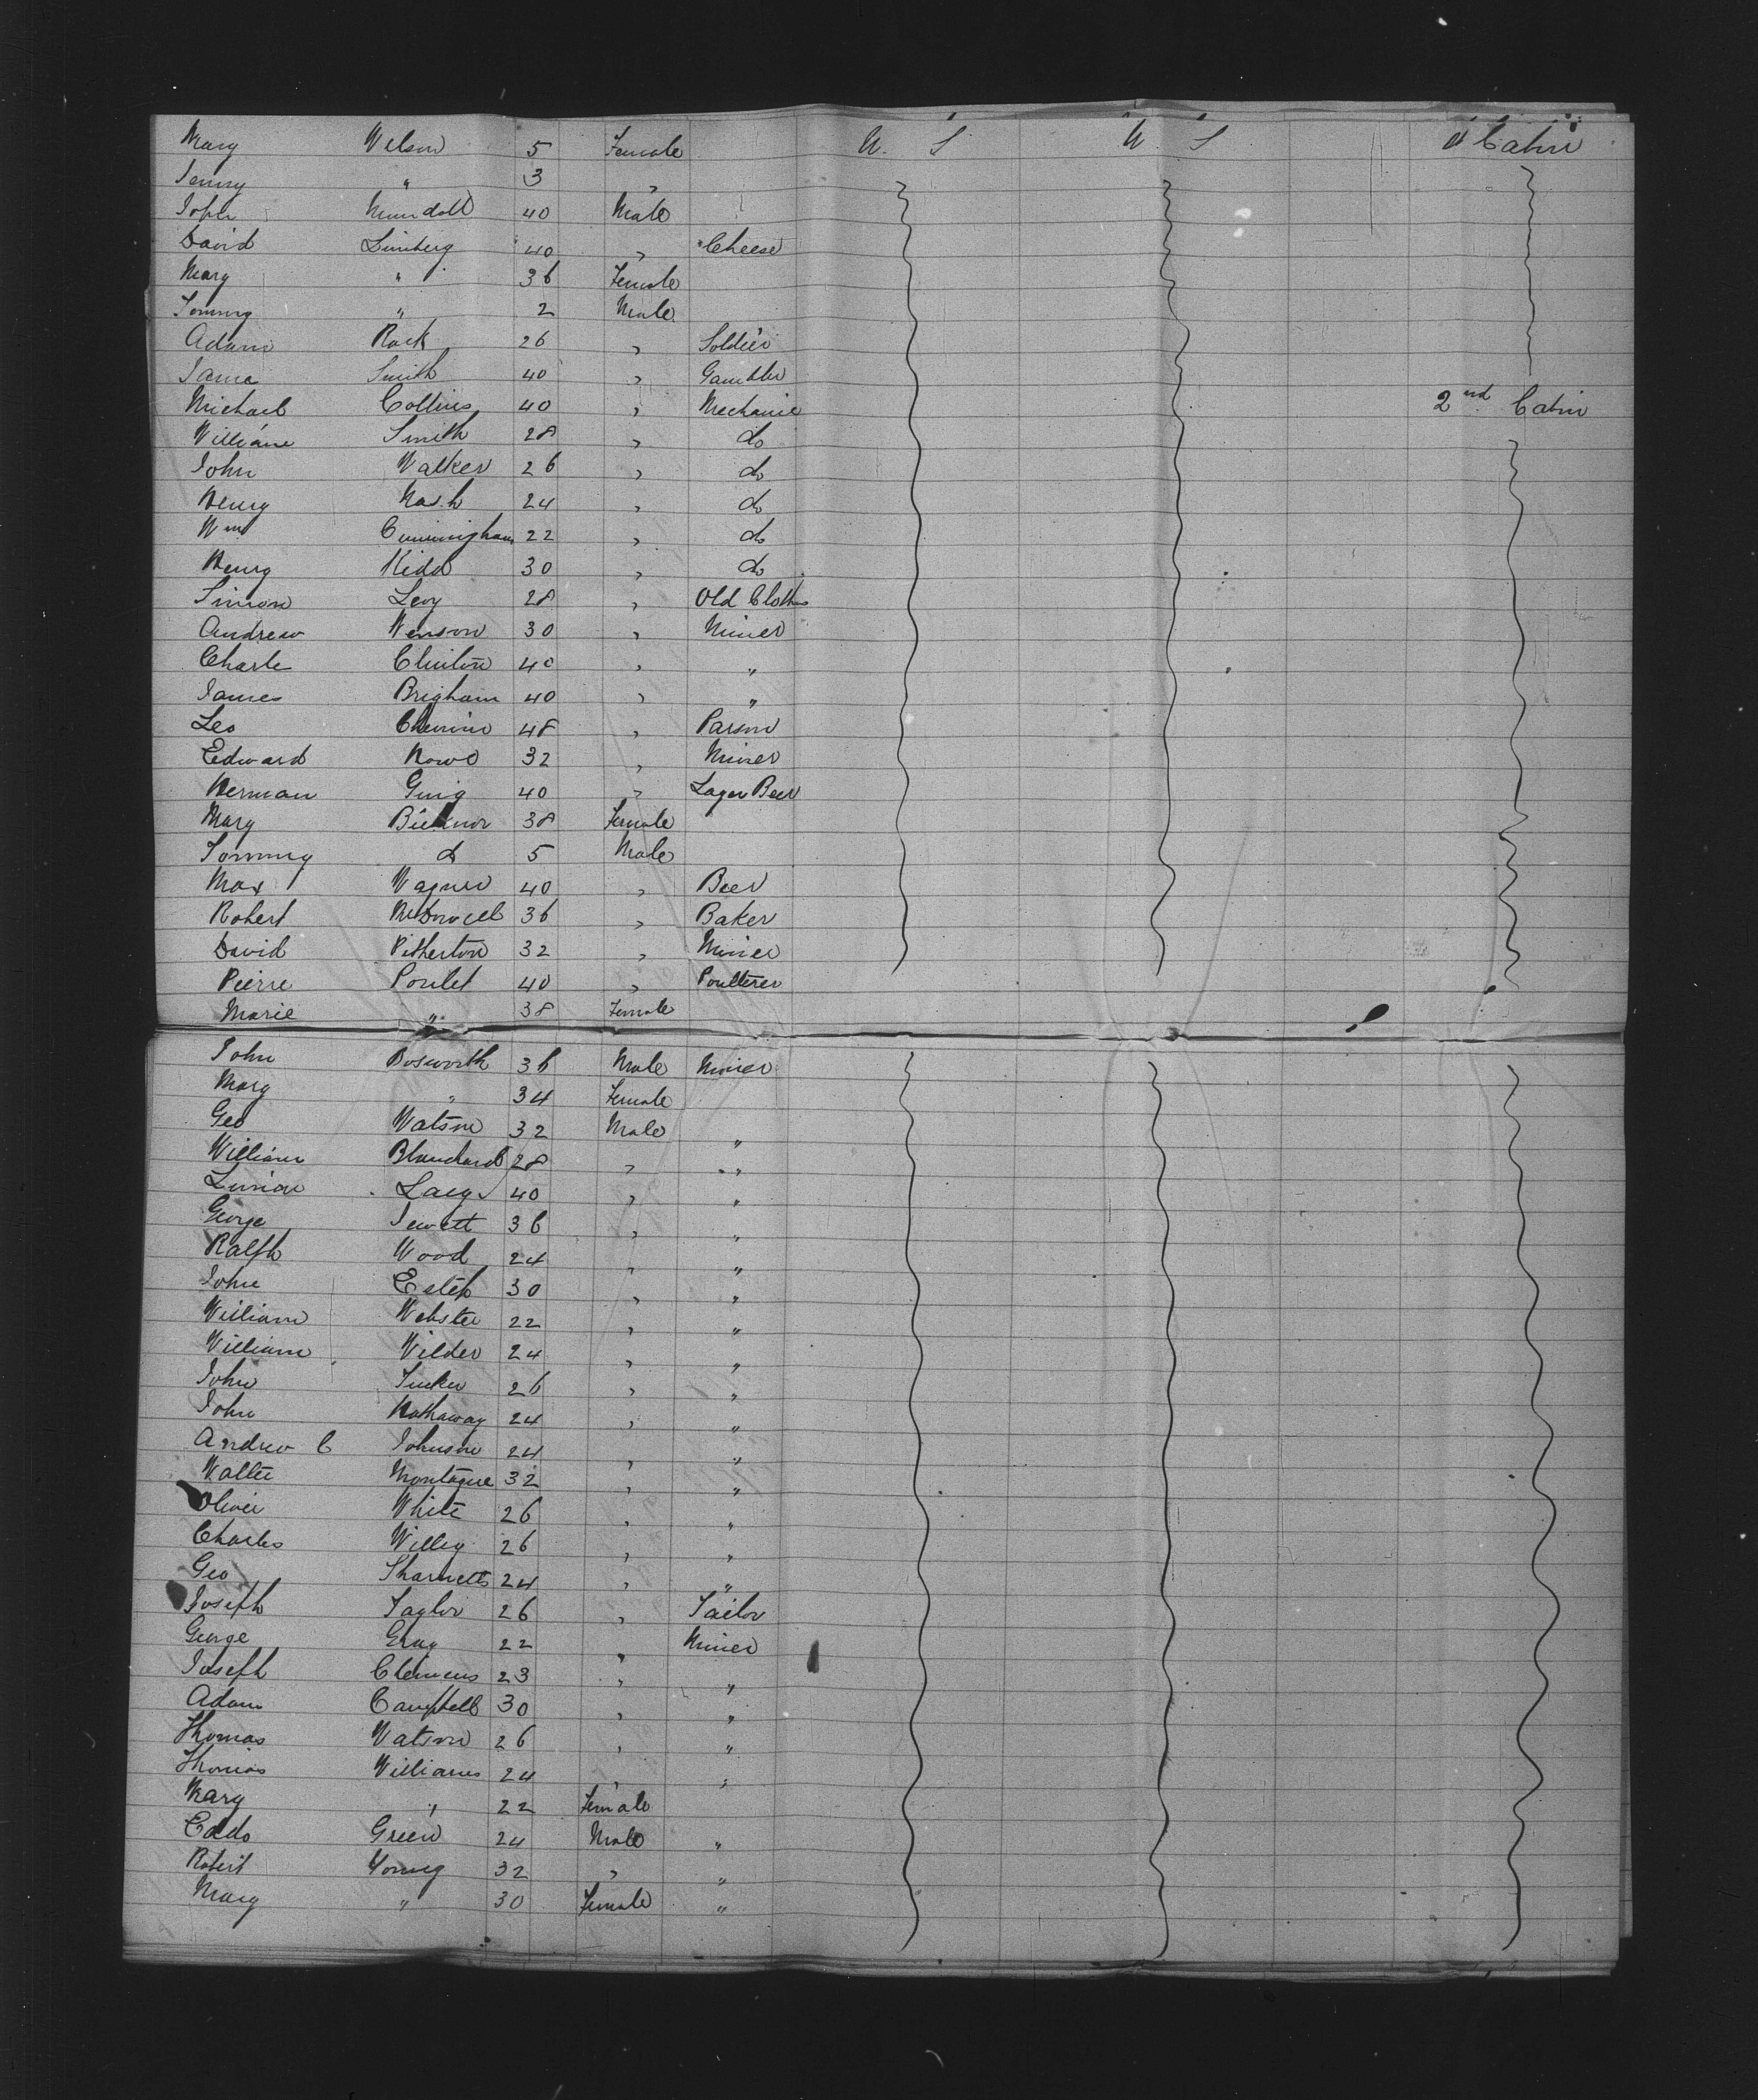 Mary Wilson 5 Female U. S U S " Cabin
Jenny " 3 "
John Mundall 40 Male
David Limberg 40 " Cheese
Mary " 36 Female
Tommy " 2 Male
Adam Rock 26 " Soldier
Jame Smith 40 " Gambler
Michael Collins 40 " Mechanic 2nd Cabin
William Smith 28 " do
John Walker 26 " do
Henry Nash 24 " do
Wm Cunningham 22 " do
Henry Kidd 30 " do
Simon Levy 28 " Old Clothes
Andrew Henson 30 " Miner
Charle Clinton 40 " "
James Brigham 40 " "
Leo 48 " Parson
Edward Howe 32 " Miner
Herman 40 " Lager Beer
Mary 38 Female
Tommy do 5 Male
Max Wagner 40 " Beer
Robert McDowell 36 " Baker
David Pitherton 32 " Miner
Pierre Poulet 40 " Poulterer
Marie " 38 Female
John Bosworth 36 Male Miner
Mary " 34 Female
Geo Watson 32 Male "
William Blanchard 28 " "
40 " "
George Jewett 36 " "
Ralph Wood 24 " "
John Estep 30 " "
William Webster 22 " "
William Wilder 24 " "
John Tucker 26 " "
John Hathaway 24 " "
Andrew C Johnson 24 " "
Walter Montague 32 " "
Oliver White 26 " "
Charles Willey 26 " "
Geo 24 " "
Joseph Taylor 26 " Tailor
George Gray 22 " Miner
Joseph Clemens 23 " "
Adam Campbell 30 " "
Thomas Watson 26 " "
Thomas Williams 24 " "
Mary " 22 Female
Green 24 Male "
Robert Young 32 " "
Mary " 30 Female "